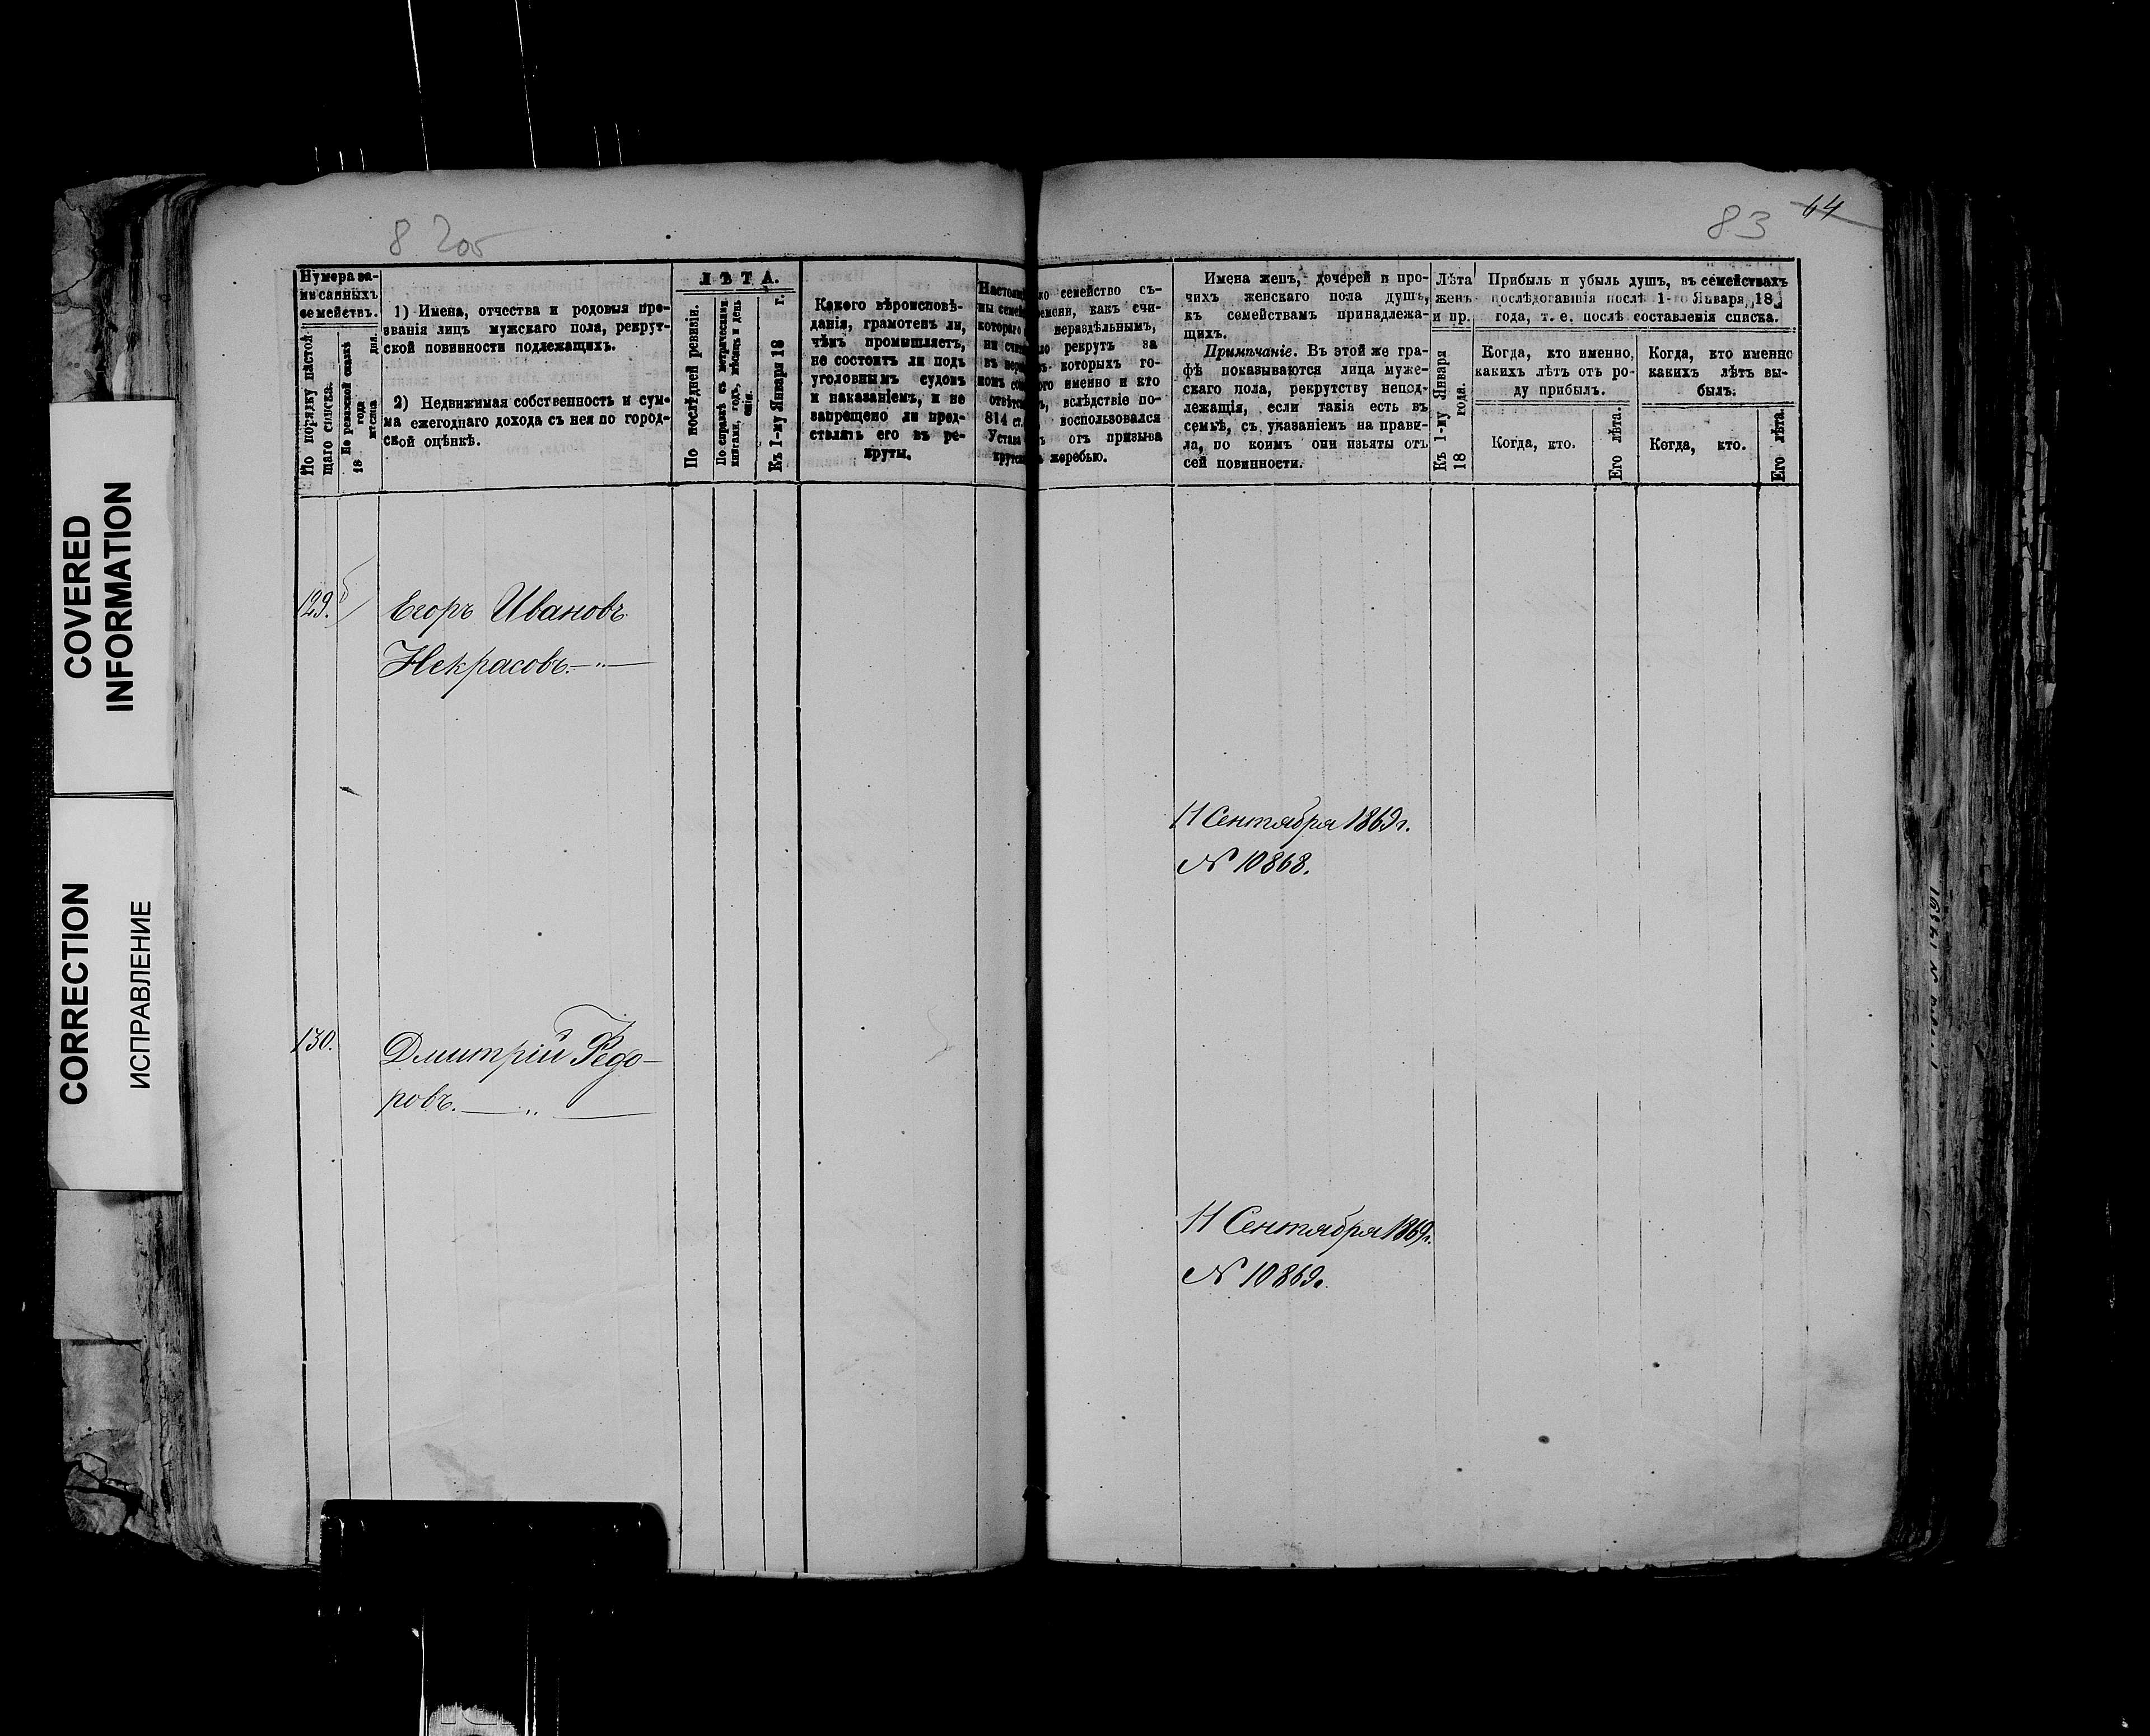 COVERED
INFORMATION
CORRECTION
ИСПРАВЛЕНИЕ
83 64
Нумера за-
писанныхъ
семействъ.
По порядку настоя
щаго списка.
По ревизской сказкѣ
18 года
мѣсяца дня.
1) Имена, отчества и родовыя про-
званія лицъ мужскаго пола, рекрут-
ской повинности подлежащихъ.
2) Недвижимая собственность и сум-
ма ежегоднаго дохода съ нея по город-
ской оцѣнкѣ.
ЛѢТА.
По послѣдней ревизіи.
По справкѣ съ метрическими
книгами, годъ, мѣсяцъ и день
Къ 1-му Января 18 г.
Какого вѣроисповѣ-
данія, грамотенъ ли,
чѣмъ промышляетъ,
не состоитъ ли подъ
уголовнымъ судомъ
и наказаніемъ, и не
запрещено ли пред-
ставлять его въ ре-
круты.
814 ст.
Устава
семейство съ-
какъ счи-
нераздѣльнымъ,
рекрутъ за
которыхъ го-
именно и кто
вслѣдствіе по-
воспользовался
отъ призыва
жеребью.
Имена женъ, дочерей и про-
чихъ женскаго пола душъ,
къ семействамъ принадлежа-
щихъ.
Примѣчаніе. Въ этой же гра-
фѣ показываются лица муже-
скаго пола, рекрутству непод-
лежащія, если такія есть въ
семьѣ, съ указаніемъ на прави-
ла, по коимъ они изъяты отъ
сей повинности.
Лѣта
женъ
и пр.
Къ 1-му Января
18 года.
Прибыль и убыль душъ, въ семействахъ
послѣдовавшія послѣ 1-го Января 18
года, т. е. послѣ составленія списка.
Когда, кто именно,
какихъ лѣтъ отъ ро-
ду прибылъ.
Когда, кто.
Его лѣта.
Когда, кто именно
какихъ лѣтъ вы-
былъ.
Когда, кто.
Его лѣта.
129. Егоръ Ивановъ
Некрасовъ.
11 Сентября 1869 г.
№ 10868.
130. Дмитрій Ѳедо-
ровъ.
11 Сентября 1869 г.
№ 10869.